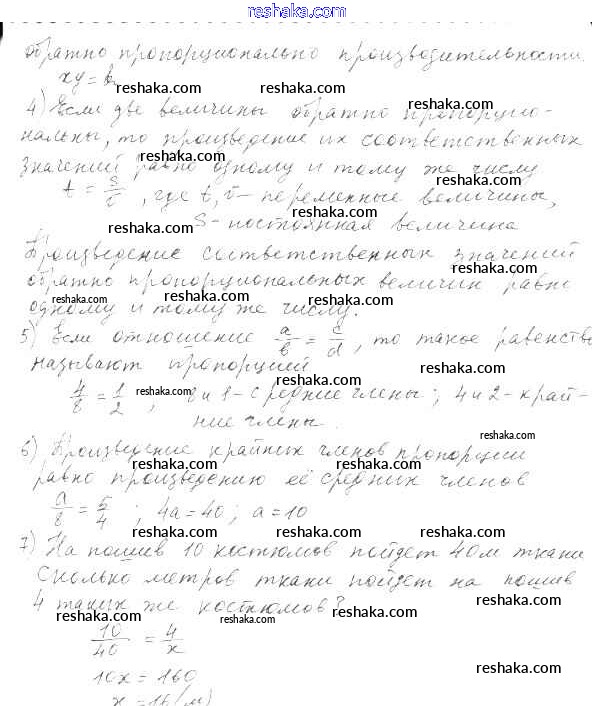 reshaka.com
обратно пропорционально производительности.
xy = k
reshaka.com reshaka.com
4) Если две величины обратно пропорцио-
reshaka.com reshaka.com
нальны, то произведение их соответственных
reshaka.com
значений равно одному и тому же числу
reshaka.com reshaka.com
t = s/v, где t, v - переменные величины,
reshaka.com reshaka.com
S - постоянная величина
reshaka.com reshaka.com
Произведение соответственных значений
reshaka.com
обратно пропорциональных величин равно
reshaka.com reshaka.com
одному и тому же числу.
5) Если отношение a/b = c/d, то такое равенство
reshaka.com reshaka.com
называют пропорцией
reshaka.com
4/8 = 1/2, 8 и 1 - средние члены; 4 и 2 - край-
reshaka.com reshaka.com
ние члены.
reshaka.com
6) Произведение крайних членов пропорции
reshaka.com reshaka.com
равно произведению её средних членов
reshaka.com reshaka.com
a/8 = 5/4; 4a = 40; a = 10
reshaka.com reshaka.com
7) На пошив 10 костюмов пойдет 40м ткани
reshaka.com
Сколько метров ткани пойдет на пошив
reshaka.com reshaka.com
4 таких же костюмов?
reshaka.com
10/40 = 4/x
reshaka.com
10x = 160
reshaka.com
x = 16 (м)